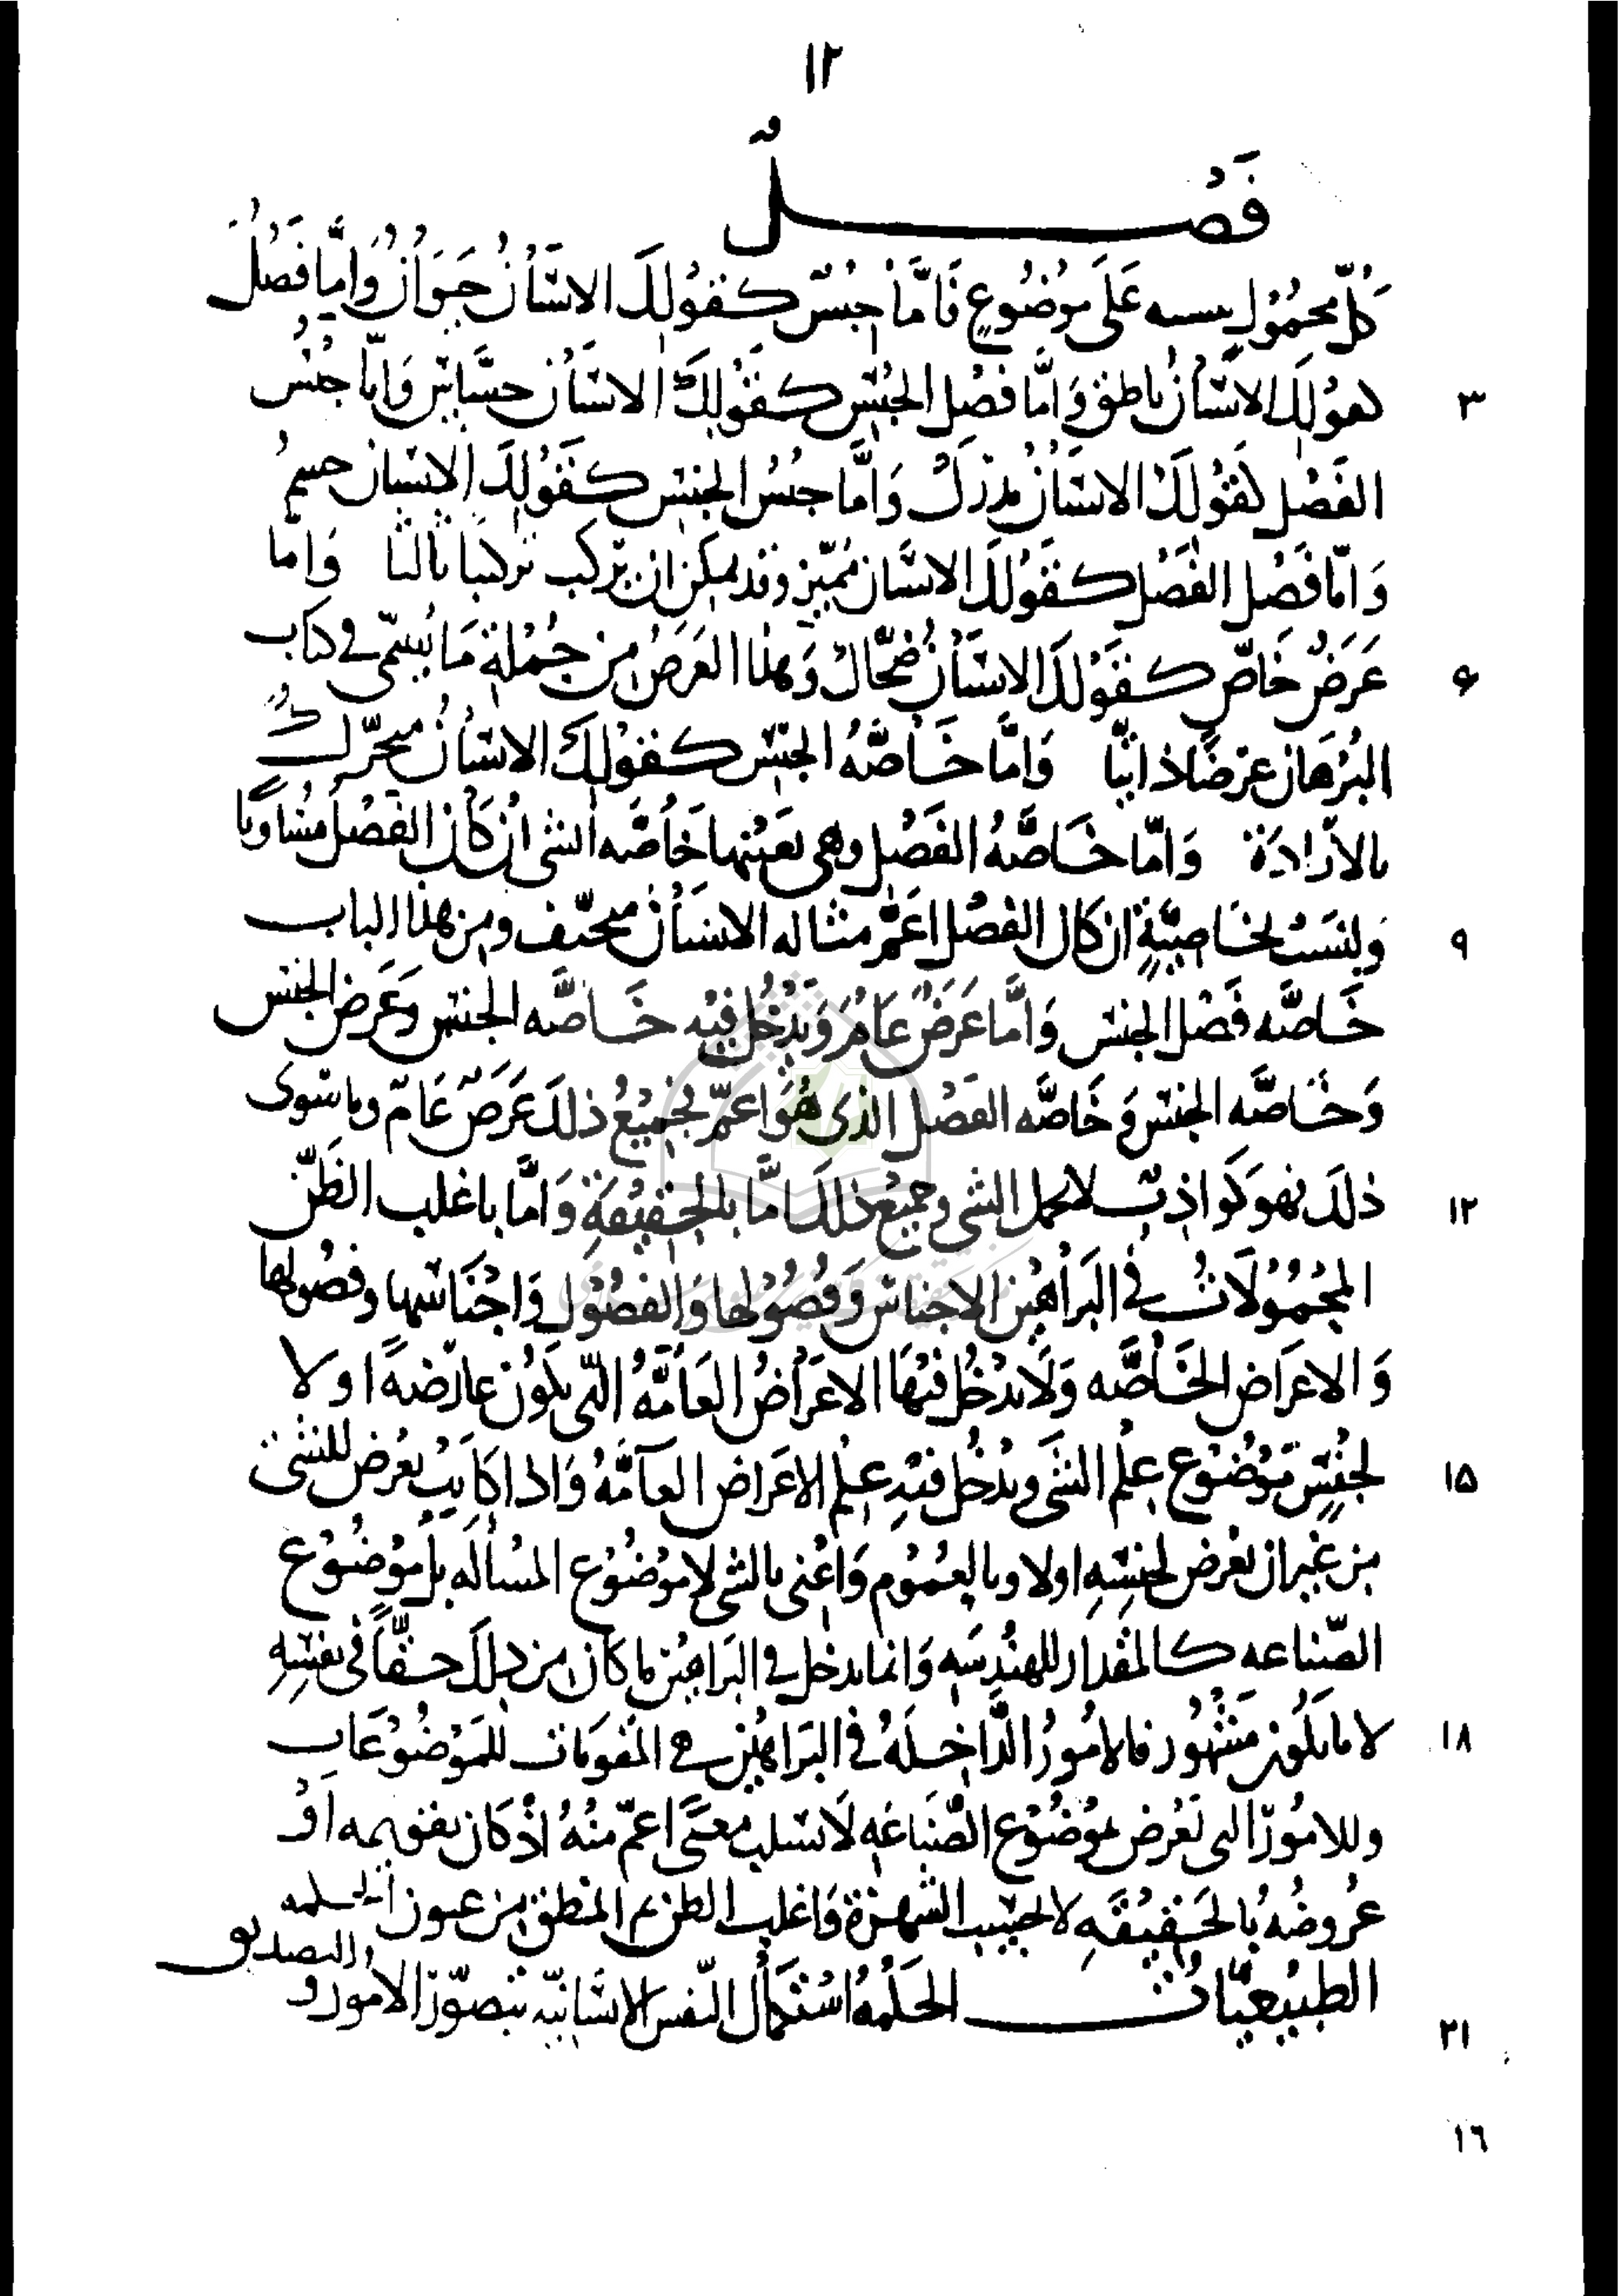 ١٢
فَصْلٌ
كُلّ محمُوْلٍ عَلَى مَوْضُوعٍ فَامَّا جِنْسٌ كقوْلِكَ الانْسَانُ حَيَوَانٌ وَامَّا فَصْلٌ
٣ كقوْلِكَ الانْسَانُ ناطق وَامَّا فَصْل الجِنْسِ كقَوْلِكَ الانْسَان حسَّاسٌ وَامّا جنْسُ
الفَصْلِ كقَوْلكَ الانسَانُ مدْرَكْ وَامَّا جنْسُ الجِنسِ كقَوْلكَ الانْسَان جسمٌ
وَامّا فَصْل الفَصْل كقَوْلكَ الانسَان مُمَيّز وقد يمكن ان يركب تركيبا ثالثا وَامّا
٦ عَرَضٌ خَاصّ كقَوْلكَ الانسَانُ ضحَّاكْ وَهٰذا العَرَضُ مِن جُمْلَةِ مَا يُسَمّى في كتاب
البُرْهَان عَرَضًا ذاتيّا وَامَّا خَاصَّهُ الجنسِ كقوْلكَ الانسَانُ متحرّكٌ
بالارَادَة وَامّا خَاصَّهُ الفَصْل وهى بعَيْنها خَاصَّه الشى ان كَان الفَصْل مسَاويًا
٩ وَليْسَتْ بخَاصِيّةٍ ان كان الفصْل اعَمَّ مثاله الانسَانُ متحيّف ومن هذا الباب
خَاصَّه فَصْل الجنس وَامَّا عَرَضٌ عَامٌ وَيَدْخُل فيْه خَاصَّه الجنس وَعَرَض الجنس
وَخَاصَّه الجنس وَخَاصَّه الفَصْل الذى هُوَ اعمّ فجَميْعُ ذلكَ عَرَضٌ عَامّ وما سوى
١٢ ذلكَ فهو كَواذبٌ لا تحمل الشى وجميْعُ ذلكَ امَّا بالحقيْقةِ وَامَّا باغلب الظَنّ
المحْمُوْلَاتُ في البَرَاهِيْن الاجناسُ وَفصُوْلها وَالفصُوْل وَاجْنَاسها وفصُولها
وَالاعرَاض الخَاصَّه وَلَا يدْخُل فيْهَا الاعْرَاضُ العَامَّهُ الّتى يكوْن عارضةً اولا
١٥ لجنْسِ مَوْضُوْع عِلْم الشَى ويدْخُل فيْهِ عِلْم الاعْرَاض العَامَّهُ وَاذا كَانت يعْرض للشى
مِن غيْر ان يعْرض لجنسِهِ اولا وبالعمُوْم وَاعْنى بالشى لا مَوْضُوْع المسْألَه بل مَوْضُوْع
الصّناعه كالمقدار للهنْدسَه وَانما يدخل في البَرَاهِيْن مَا كَان من ذلكَ حقًّا فى نفسِهِ
١٨ لا ما يكوْن مَشْهُور فالامُورُ الدَّاخِلَهُ فى البَرَاهِيْن هى المقوّمات للمَوْضُوْعَاتِ
وللامُوْر التى تَعْرض لمَوْضُوْع الصّنَاعَهِ لَا بسبب معنَى اعمّ منْهُ اذْ كان بتقويمه اوْ
عُروضُهُ بالحَقِيْقَهِ لا بحسب الشهْرَة وَاغلب الظن تم المنْطق من عيون الحكمه
٢١ الطبيعيّاتُ الحكْمَهُ اسْتكمَالُ النّفس الانسَانيّه بتصَوّر الامُور و
والتصديق
١٦